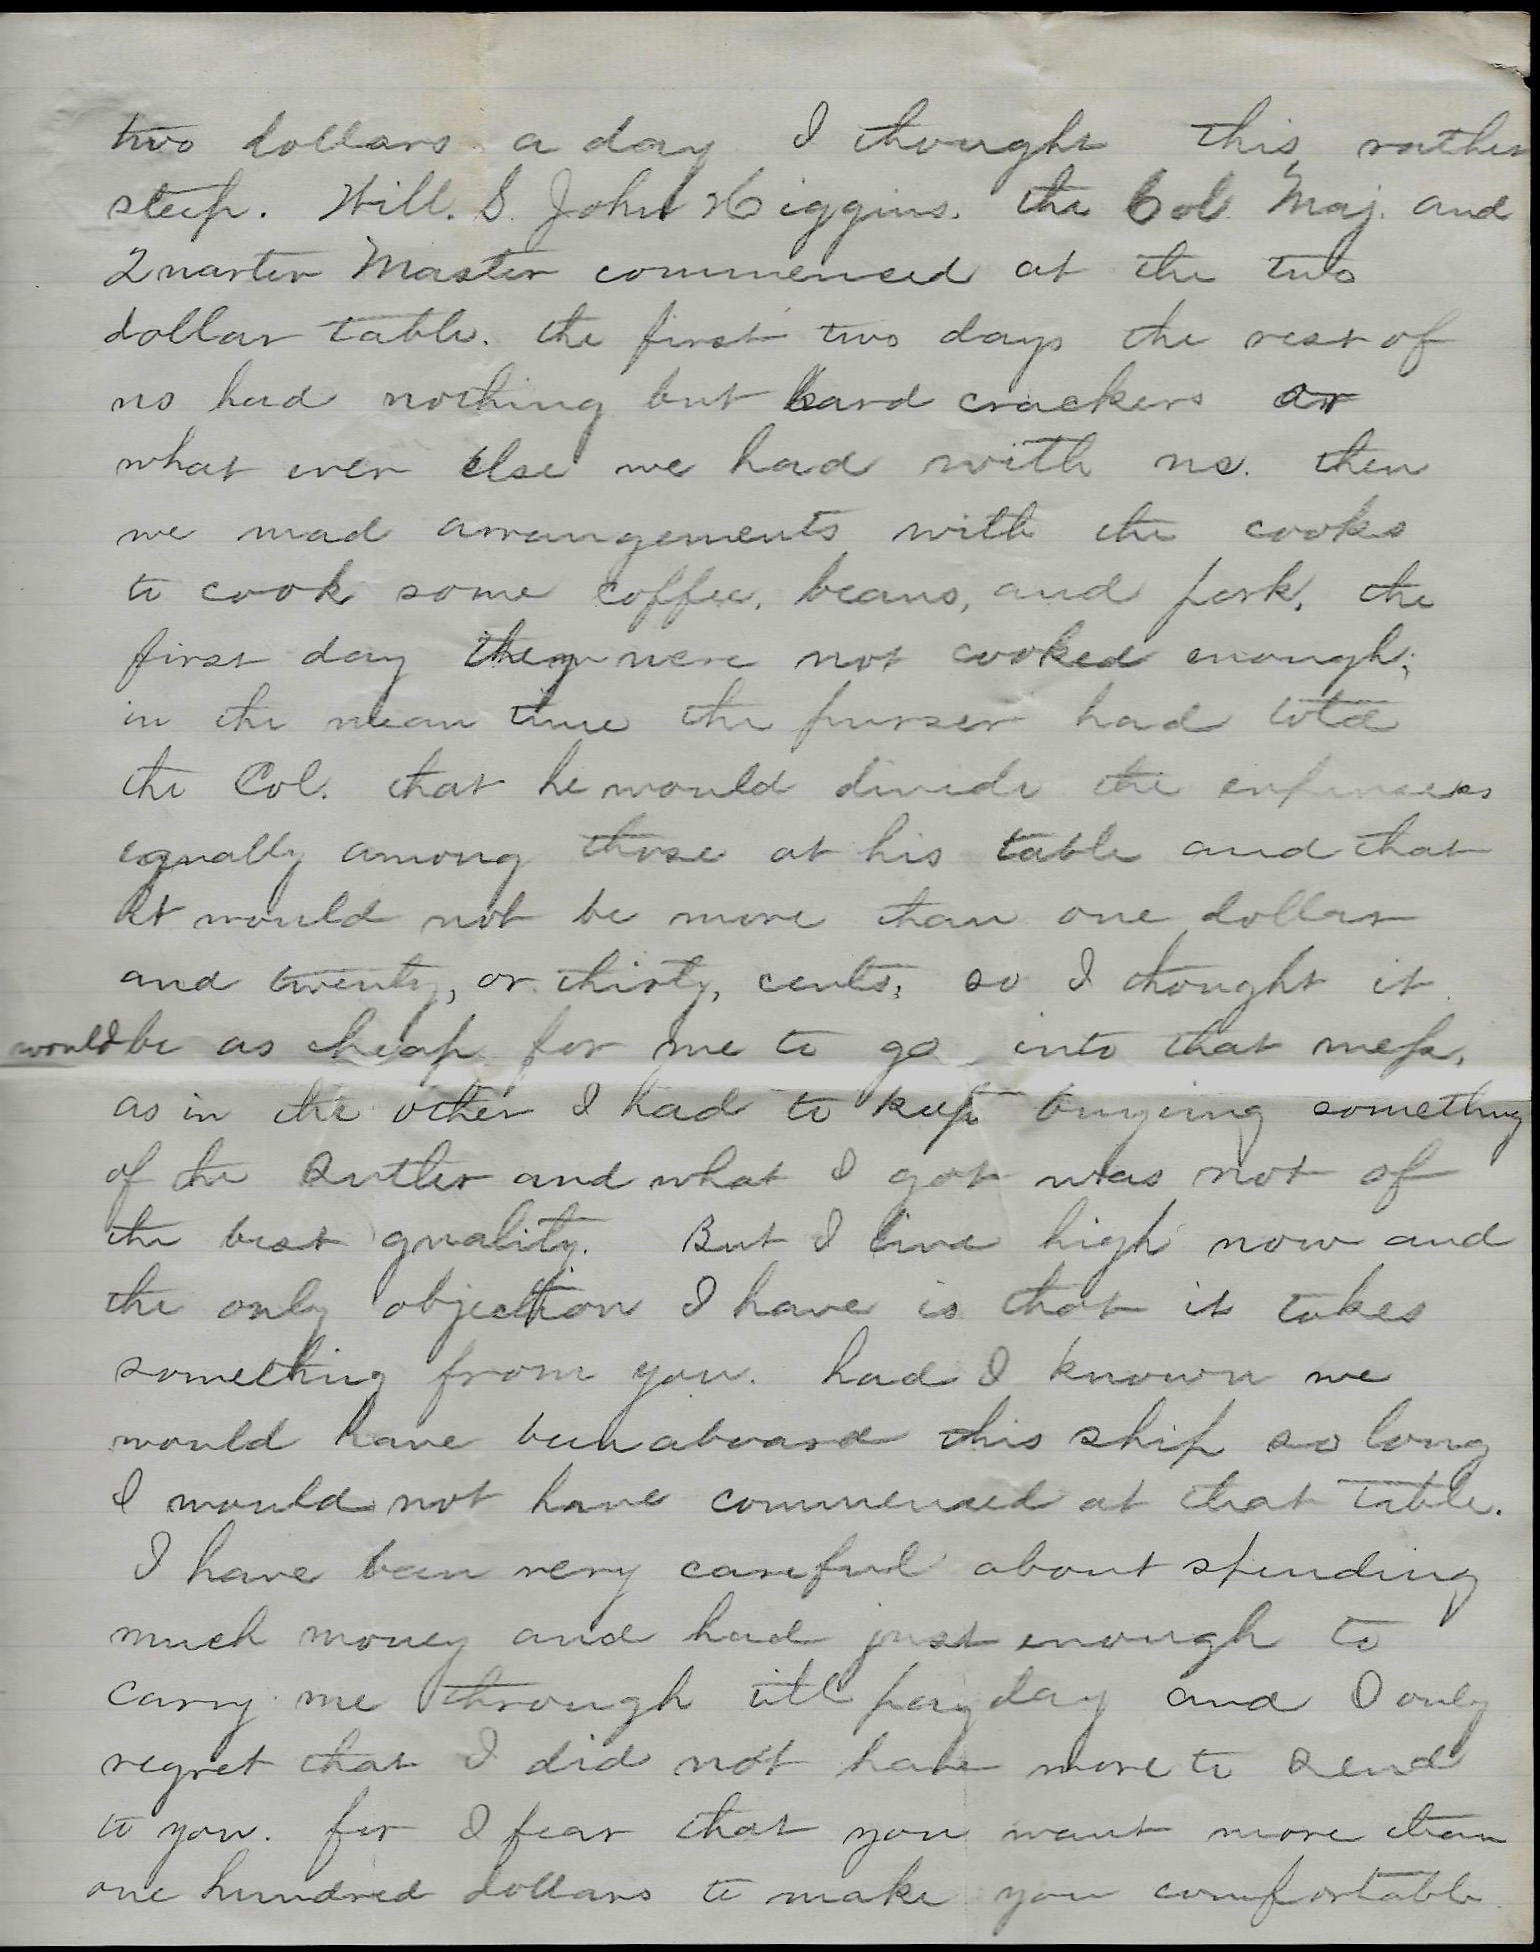 two dollars a day I thought this rather
steep. Will. S. John Higgins. the Col. Maj. and
Quarter Master commenced at the two
dollar table. the first two days the rest of
us had nothing but hard crackers or
what ever else we had with us. then
we mad arrangements with the cooks
to cook some coffee, beans, and pork, the
first day they were not cooked enough;
in the mean time the purser had told
the Col. that he would divide the expenses
equally among those at his table and that
it would not be more than one dollar
and twenty, or thirty, cents; so I thought it
would be as cheap for me to go into that mess,
as in the other I had to keep buying something
of the Sutler and what I got was not of
the best quality. But I live high now and
the only objection I have is that it takes
something from you. had I known we
would have been aboard this ship so long
I would not have commenced at that table.
I have been very careful about spending
much money and had just enough to
carry me through till pay day and I only
regret that I did not have more to send
to you. for I fear that you want more than
one hundred dollars to make you comfortable